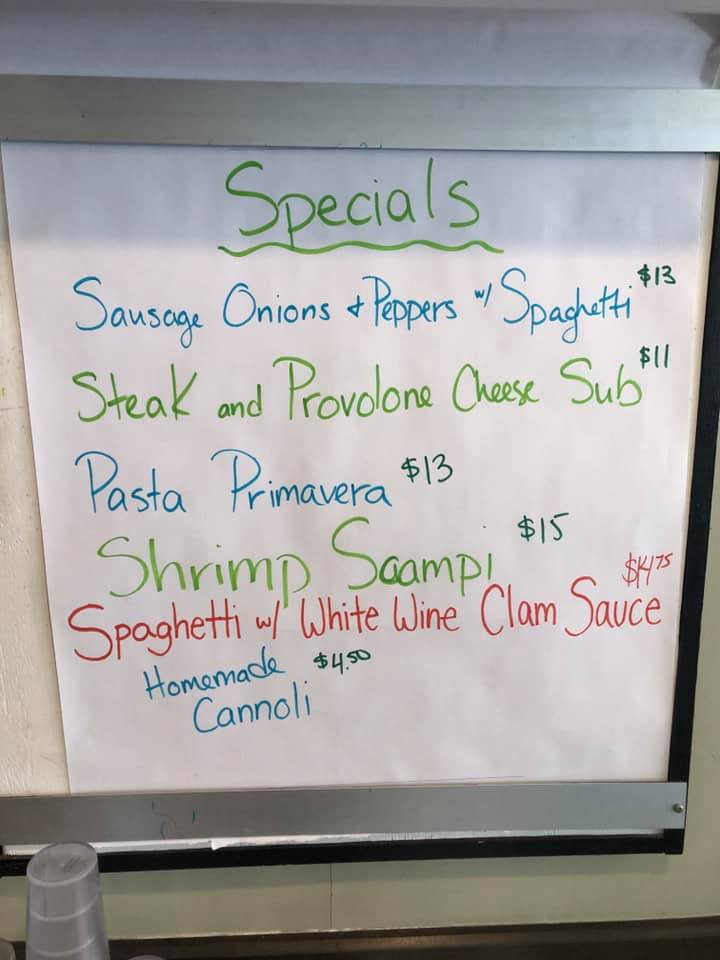 Specials
Sausage Onions & Peppers w/ Spaghetti $13
Steak and Provolone Cheese Sub $11
Pasta Primavera $13
Shrimp Scampi $15
Spaghetti w/ White Wine Clam Sauce $14.75
Homemade $4.50
Cannoli